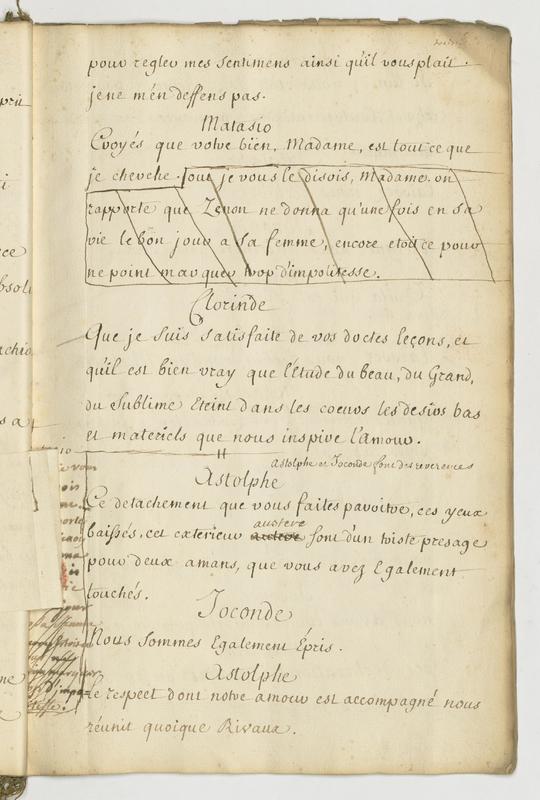 pour regler mes sentimens ainsi quil vous plait.
je ne m'en deffens pas.
Matasio
Croyés que votre bien, Madame, est tout ce que
je cherche. Tout je vous le disois, Madame, on
rapporte que Zenon ne donna qu'une fois en sa
vie le bon jour a sa femme, encore etoit ce pour
ne point marquer trop d'impolitesse.
Clorinde
Que je suis satisfaite de vos doctes leçons, et
qu'il est bien vray que l'étude du beau, du Grand,
du Sublime Eteint dans les coeurs les desirs bas
et materiels que nous inspire l'Amour.
Astolphe et Joconde font des reverences
Astolphe
Ce detachement que vous faites paroitre, ces yeux
baissés, cet exterieur austere font d'un triste presage
pour deux amans, que vous avez Egalement
touchés.
Joconde
Nous sommes Egalement Épris.
Astolphe
Le respect dont notre amour est accompagné nous
réunit quoique Rivaux.